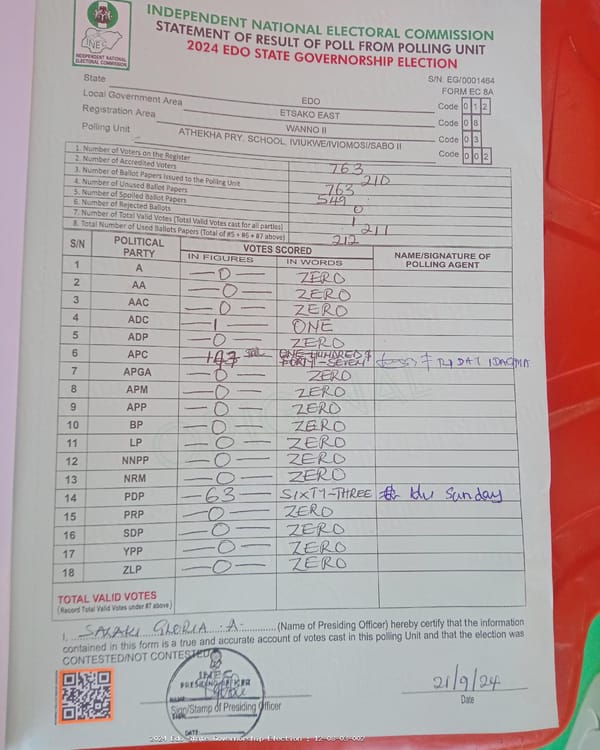 INDEPENDENT NATIONAL ELECTORAL COMMISSION
STATEMENT OF RESULT OF POLL FROM POLLING UNIT
2024 EDO STATE GOVERNORSHIP ELECTION
INEC
INDEPENDENT NATIONAL ELECTORAL COMMISSION
S/N. EG/0001464
FORM EC 8A
State EDO Code 012
Local Government Area ETSAKO EAST Code 08
Registration Area WANNO II Code 03
Polling Unit ATHEKHA PRY. SCHOOL, IVIUKWE/IVIOMOSI/SABO II Code 002
1. Number of Voters on the Register 763
2. Number of Accredited Voters 210
3. Number of Ballot Papers Issued to the Polling Unit 763
4. Number of Unused Ballot Papers 549
5. Number of Spoiled Ballot Papers 0
6. Number of Rejected Ballots 1
7. Number of Total Valid Votes (Total Valid Votes cast for all parties) 211
8. Total Number of Used Ballots Papers (Total of #5 + #6 + #7 above) 212
S/N POLITICAL PARTY VOTES SCORED NAME/SIGNATURE OF POLLING AGENT
IN FIGURES IN WORDS
1 A —0— ZERO
2 AA —0— ZERO
3 AAC —0— ZERO
4 ADC —1— ONE
5 ADP —0— ZERO
6 APC —147 ONE HUNDRED & FORTY-SEVEN
7 APGA —0— ZERO
8 APM —0— ZERO
9 APP —0— ZERO
10 BP —0— ZERO
11 LP —0— ZERO
12 NNPP —0— ZERO
13 NRM —0— ZERO
14 PDP —63— SIXTY-THREE Sunday
15 PRP —0— ZERO
16 SDP —0— ZERO
17 YPP —0— ZERO
18 ZLP —0— ZERO
TOTAL VALID VOTES
(Record Total Valid Votes under #7 above)
I, GLORIA A. (Name of Presiding Officer) hereby certify that the information
contained in this form is a true and accurate account of votes cast in this polling Unit and that the election was
CONTESTED/NOT CONTESTED
INEC
PRESIDING OFFICER
NAME
SIGN
DATE
Sign/Stamp of Presiding Officer
21/9/24
Date
2024 Edo State Governorship Election : 12-08-03-002